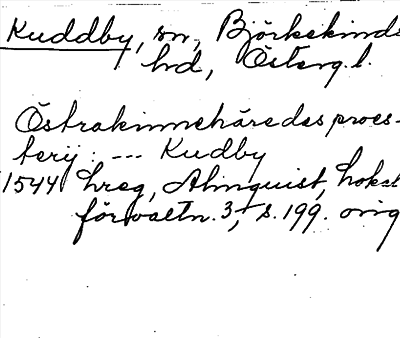 Kuddby, sn, Björkekinds
hd, Österg.l.
Östrakinnehäredes proes-
terij: --- Kudby
1544 hreg, Almquist, lokal
förvaltn. 3, s. 199. orig